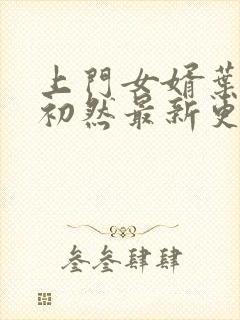 上門女婿葉
初然最新更
叁叁肆肆